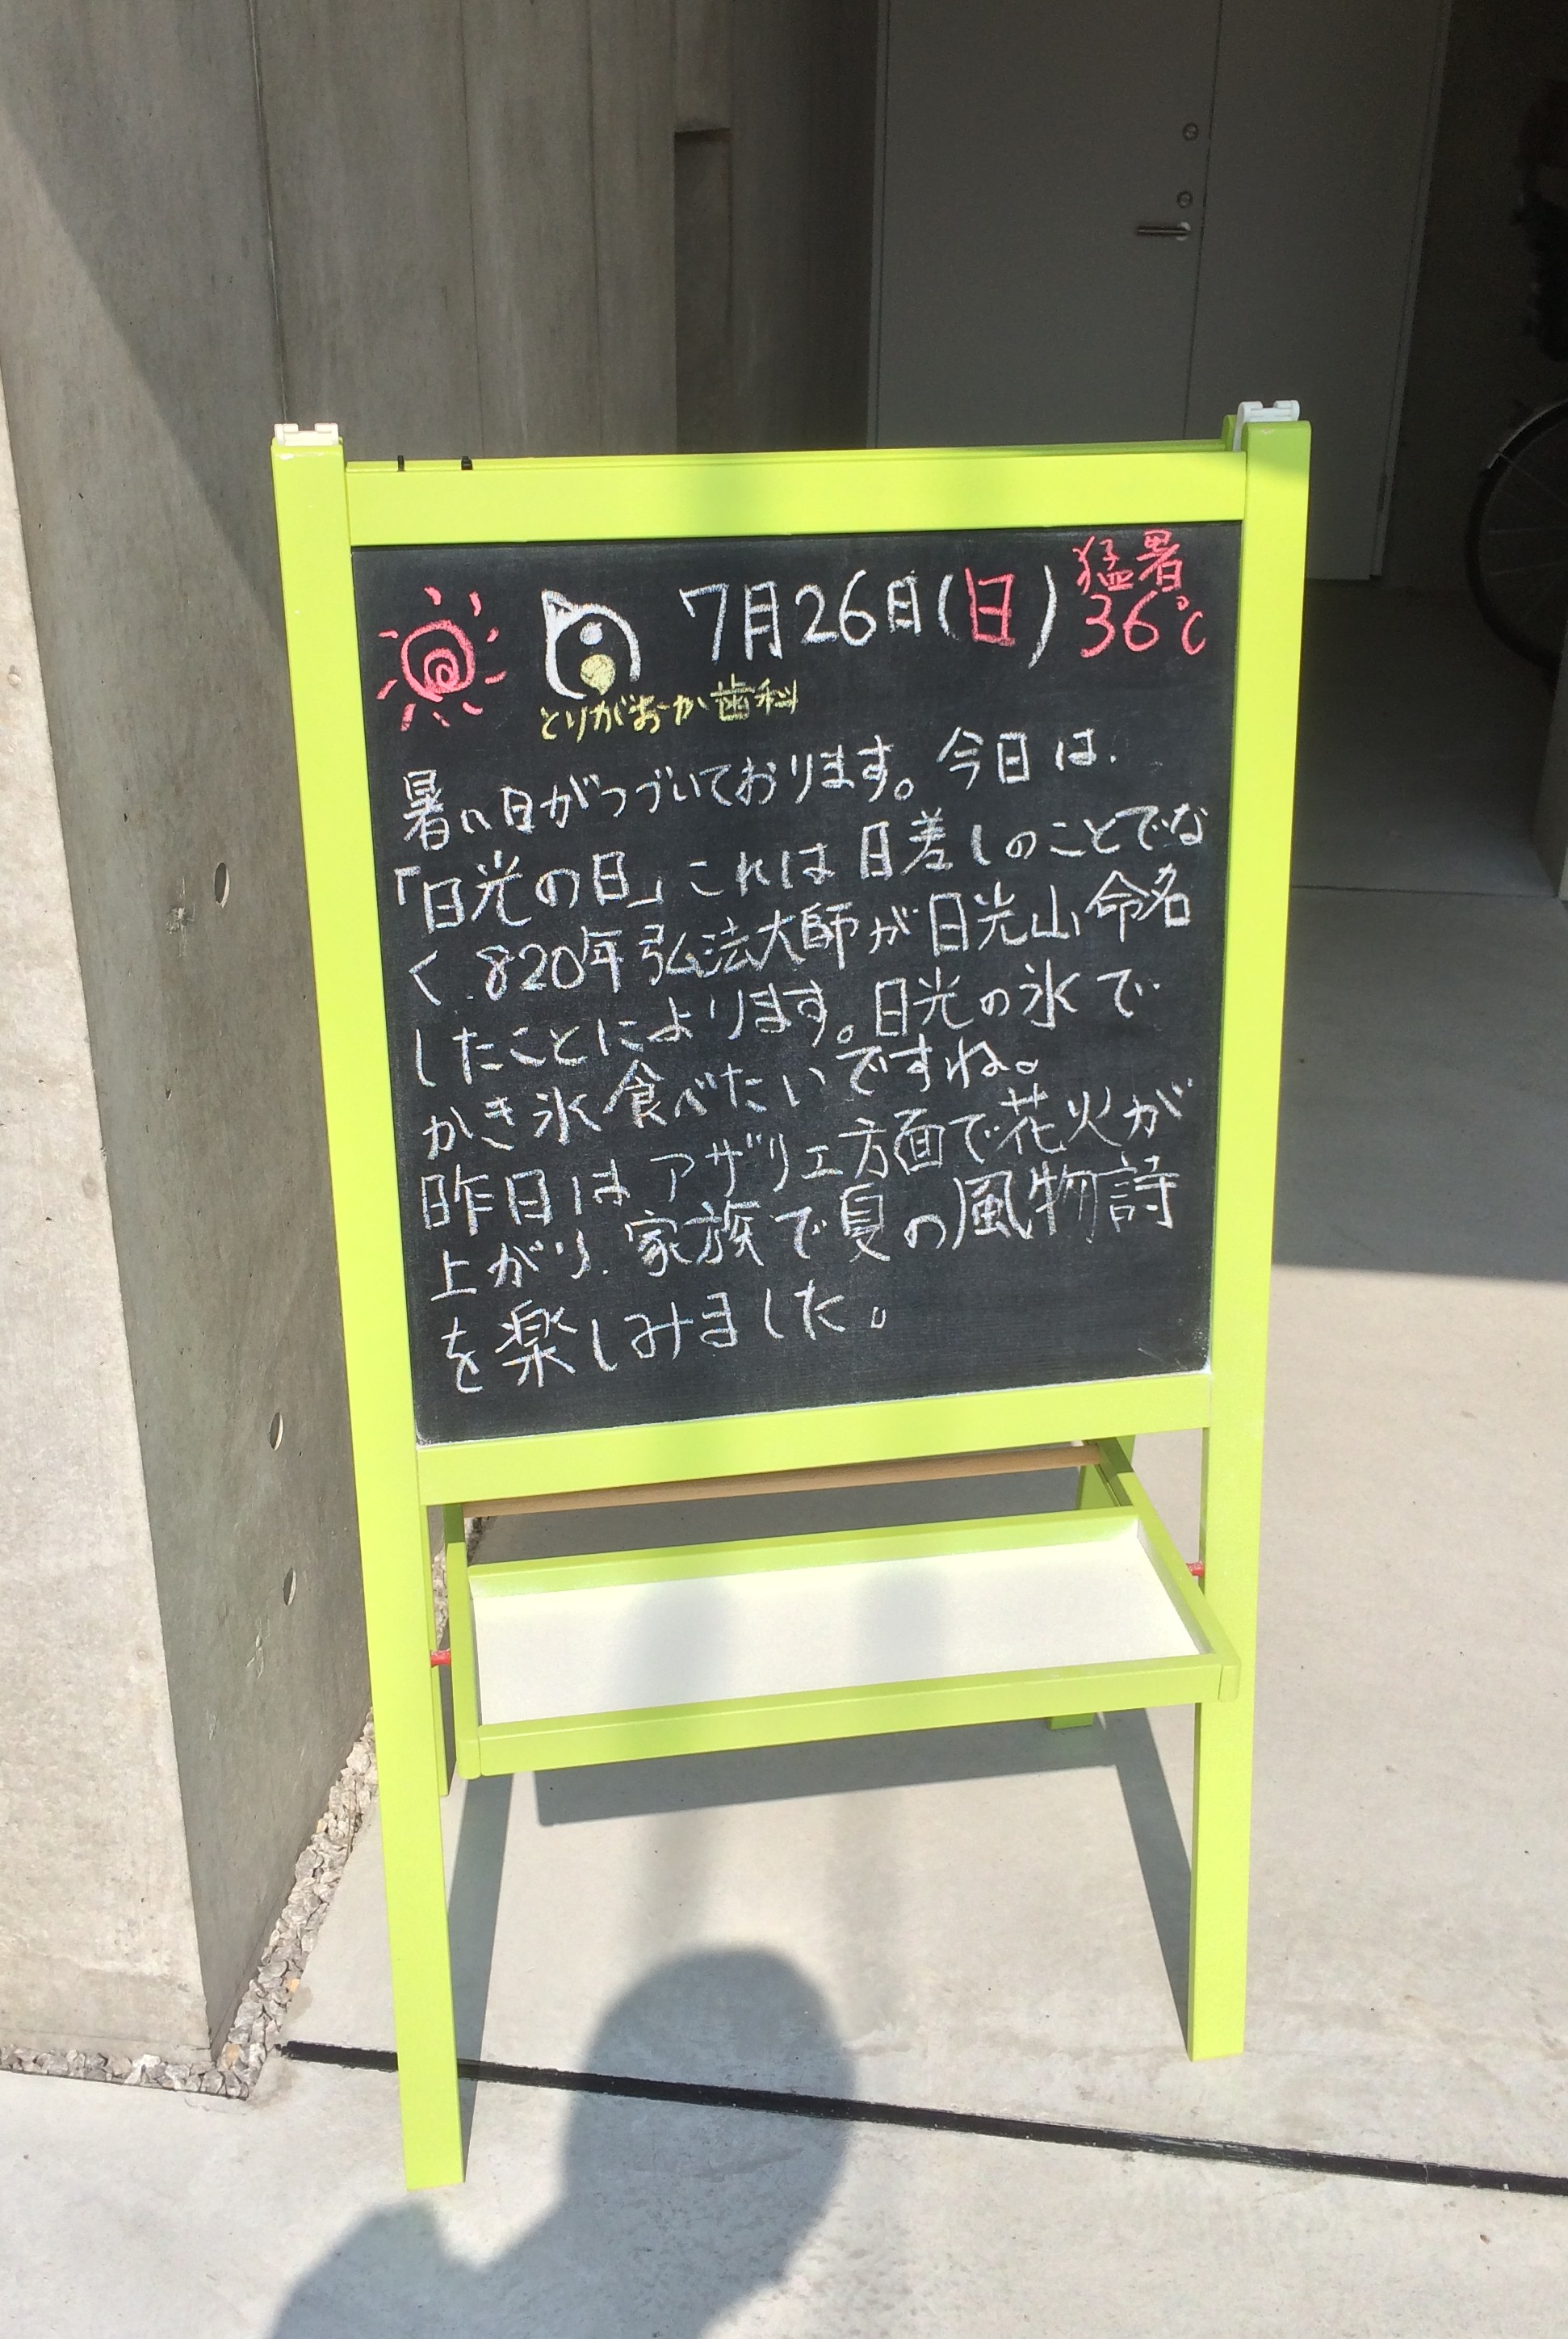 7月26日(日)猛暑36℃
とりがおか歯科
暑い日がつづいております。今日は.
「日光の日」これは日差しのことでな
く.820年弘法大師が日光山命名
したことによります。日光の氷で
かき氷食べたいですね。
昨日はアザリエ方面で花火が
上がり.家族で夏の風物詩
を楽しみました。